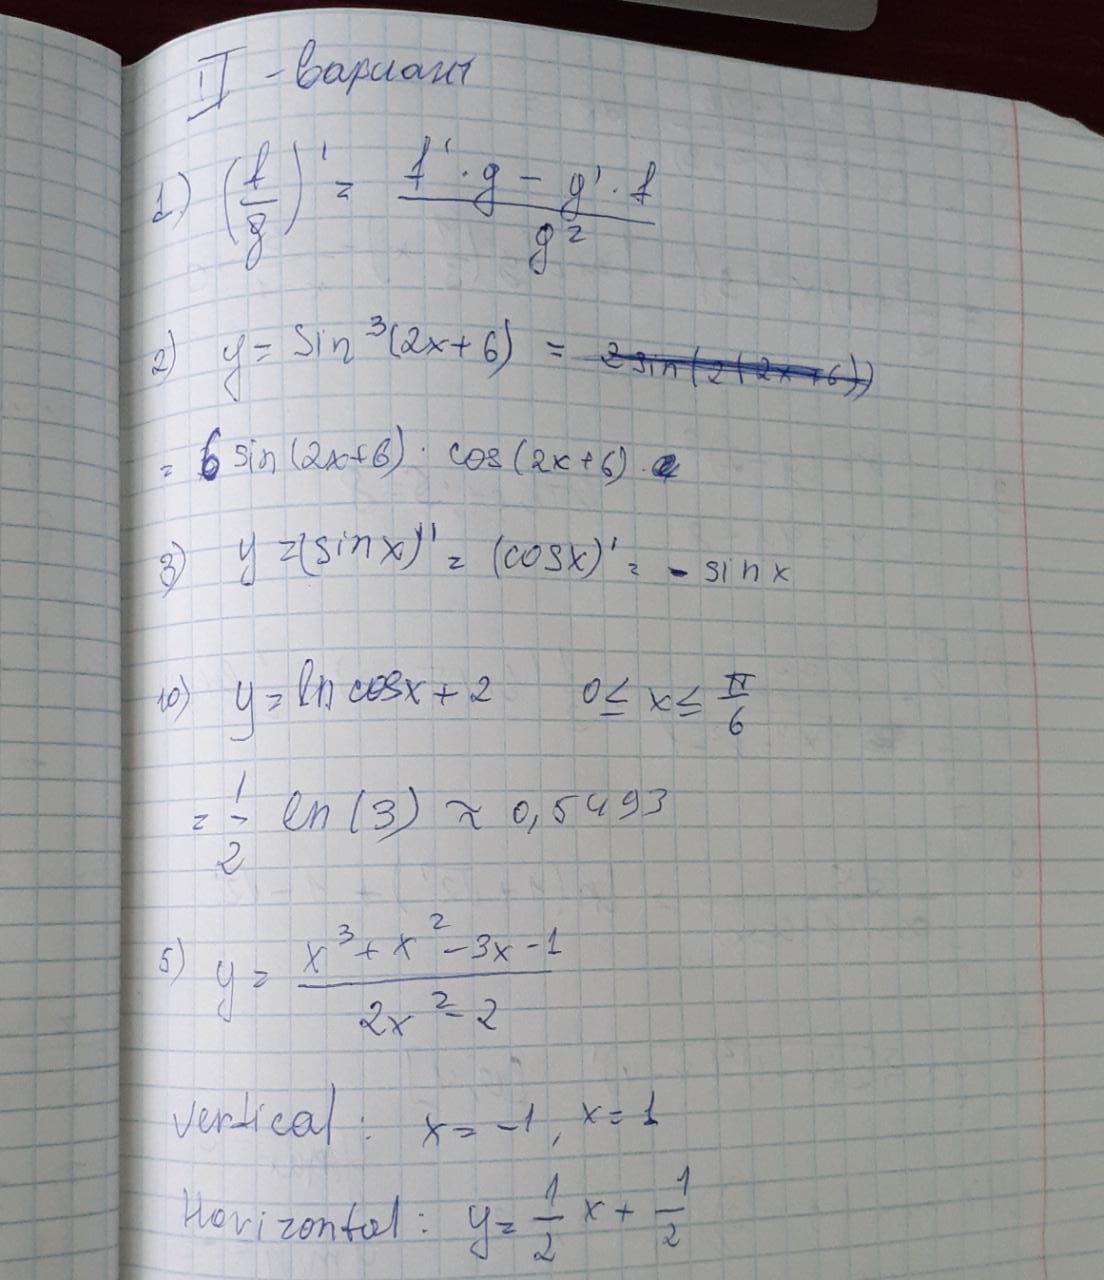 II - вариант
1) (f/g)' = (f' · g - g' · f)/g²
2) y = sin³(2x+6) = 2 sin(2(2x+6))
= 6 sin(2x+6) · cos(2x+6) ·
3) y = (sinx)'' = (cosx)' = - sinx
10) y = ln cosx + 2 0 ≤ x ≤ π/6
= 1/2 ln(3) ≈ 0,5493
5) y = (x³ + x² - 3x - 1)/(2x² - 2)
Vertical: x = -1, x = 1
Horizontal: y = 1/2 x + 1/2